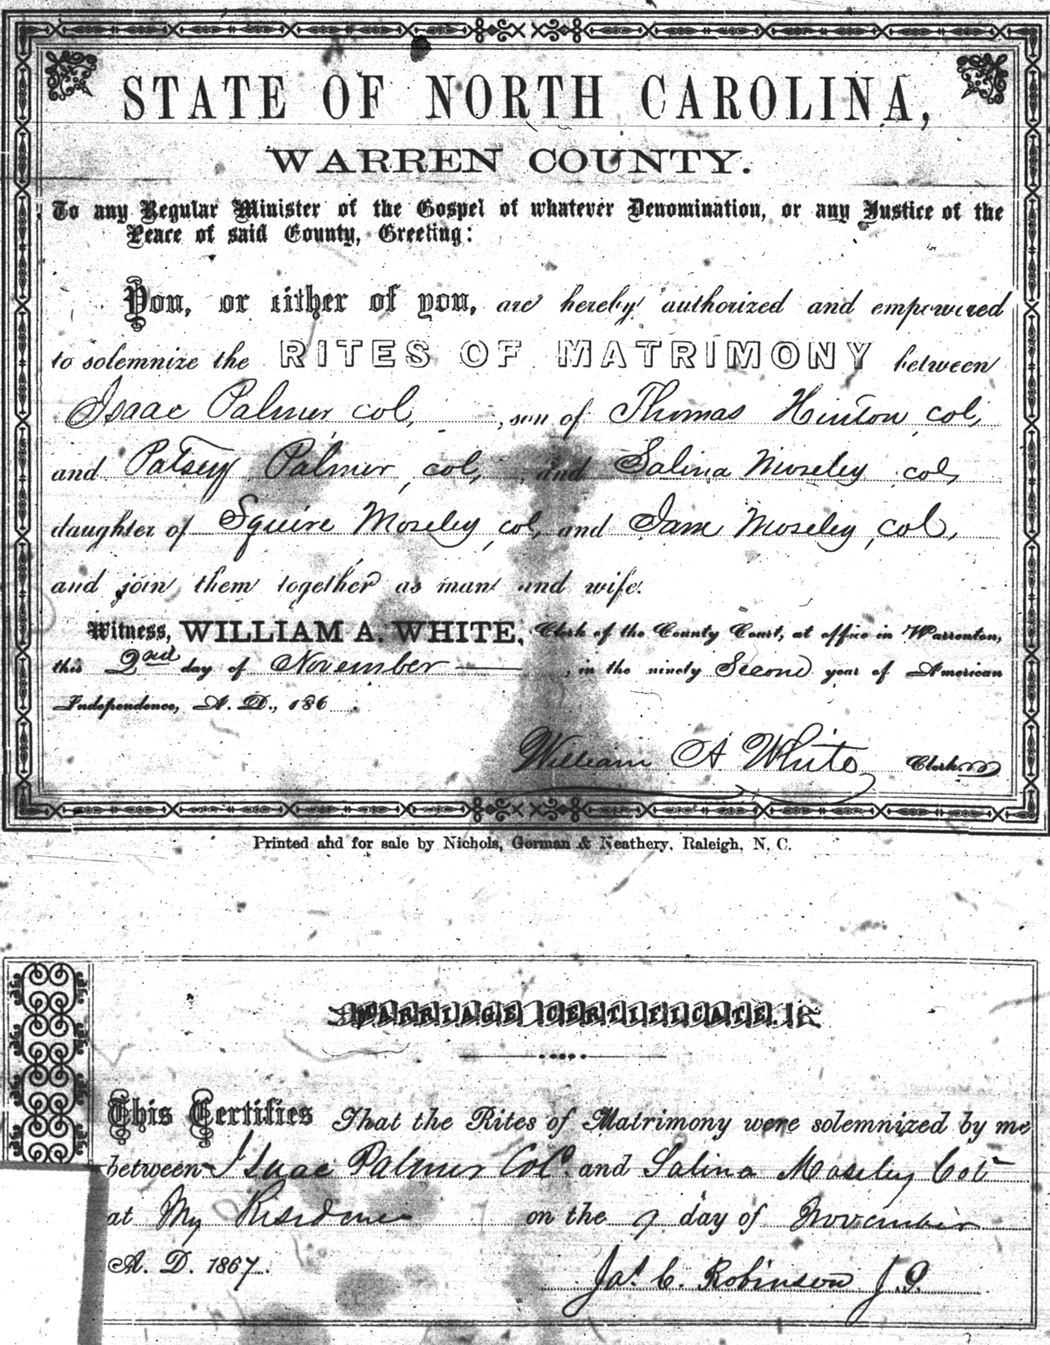 STATE OF NORTH CAROLINA,
WARREN COUNTY.
To any Regular Minister of the Gospel of whatever Denomination, or any Justice of the
Peace of said County, Greeting:
You, or either of you, are hereby authorized and empowered
to solemnize the RITES OF MATRIMONY between
Isaac Palmer col, , son of Thomas Hinton col,
and Patsey Palmer, col, , and Salina Moseley col,
daughter of Squire Moseley, col, and Jam Moseley, col,
and join them together as man and wife.
Witness, WILLIAM A. WHITE, Clerk of the County Court, at office in Warrenton,
this 2nd day of November , in the ninety Second year of American
Independence, A. D., 186 .
William A White Clerk
Printed and for sale by Nichols, Gorman & Neathery, Raleigh, N. C.
MARRIAGE CERTIFICATE.
This Certifies That the Rites of Matrimony were solemnized by me
between Isaac Palmer Col. and Salina Moseley Col
at My Residence on the 7 day of November
A. D. 1867.
Jas. C. Robinson J.P.